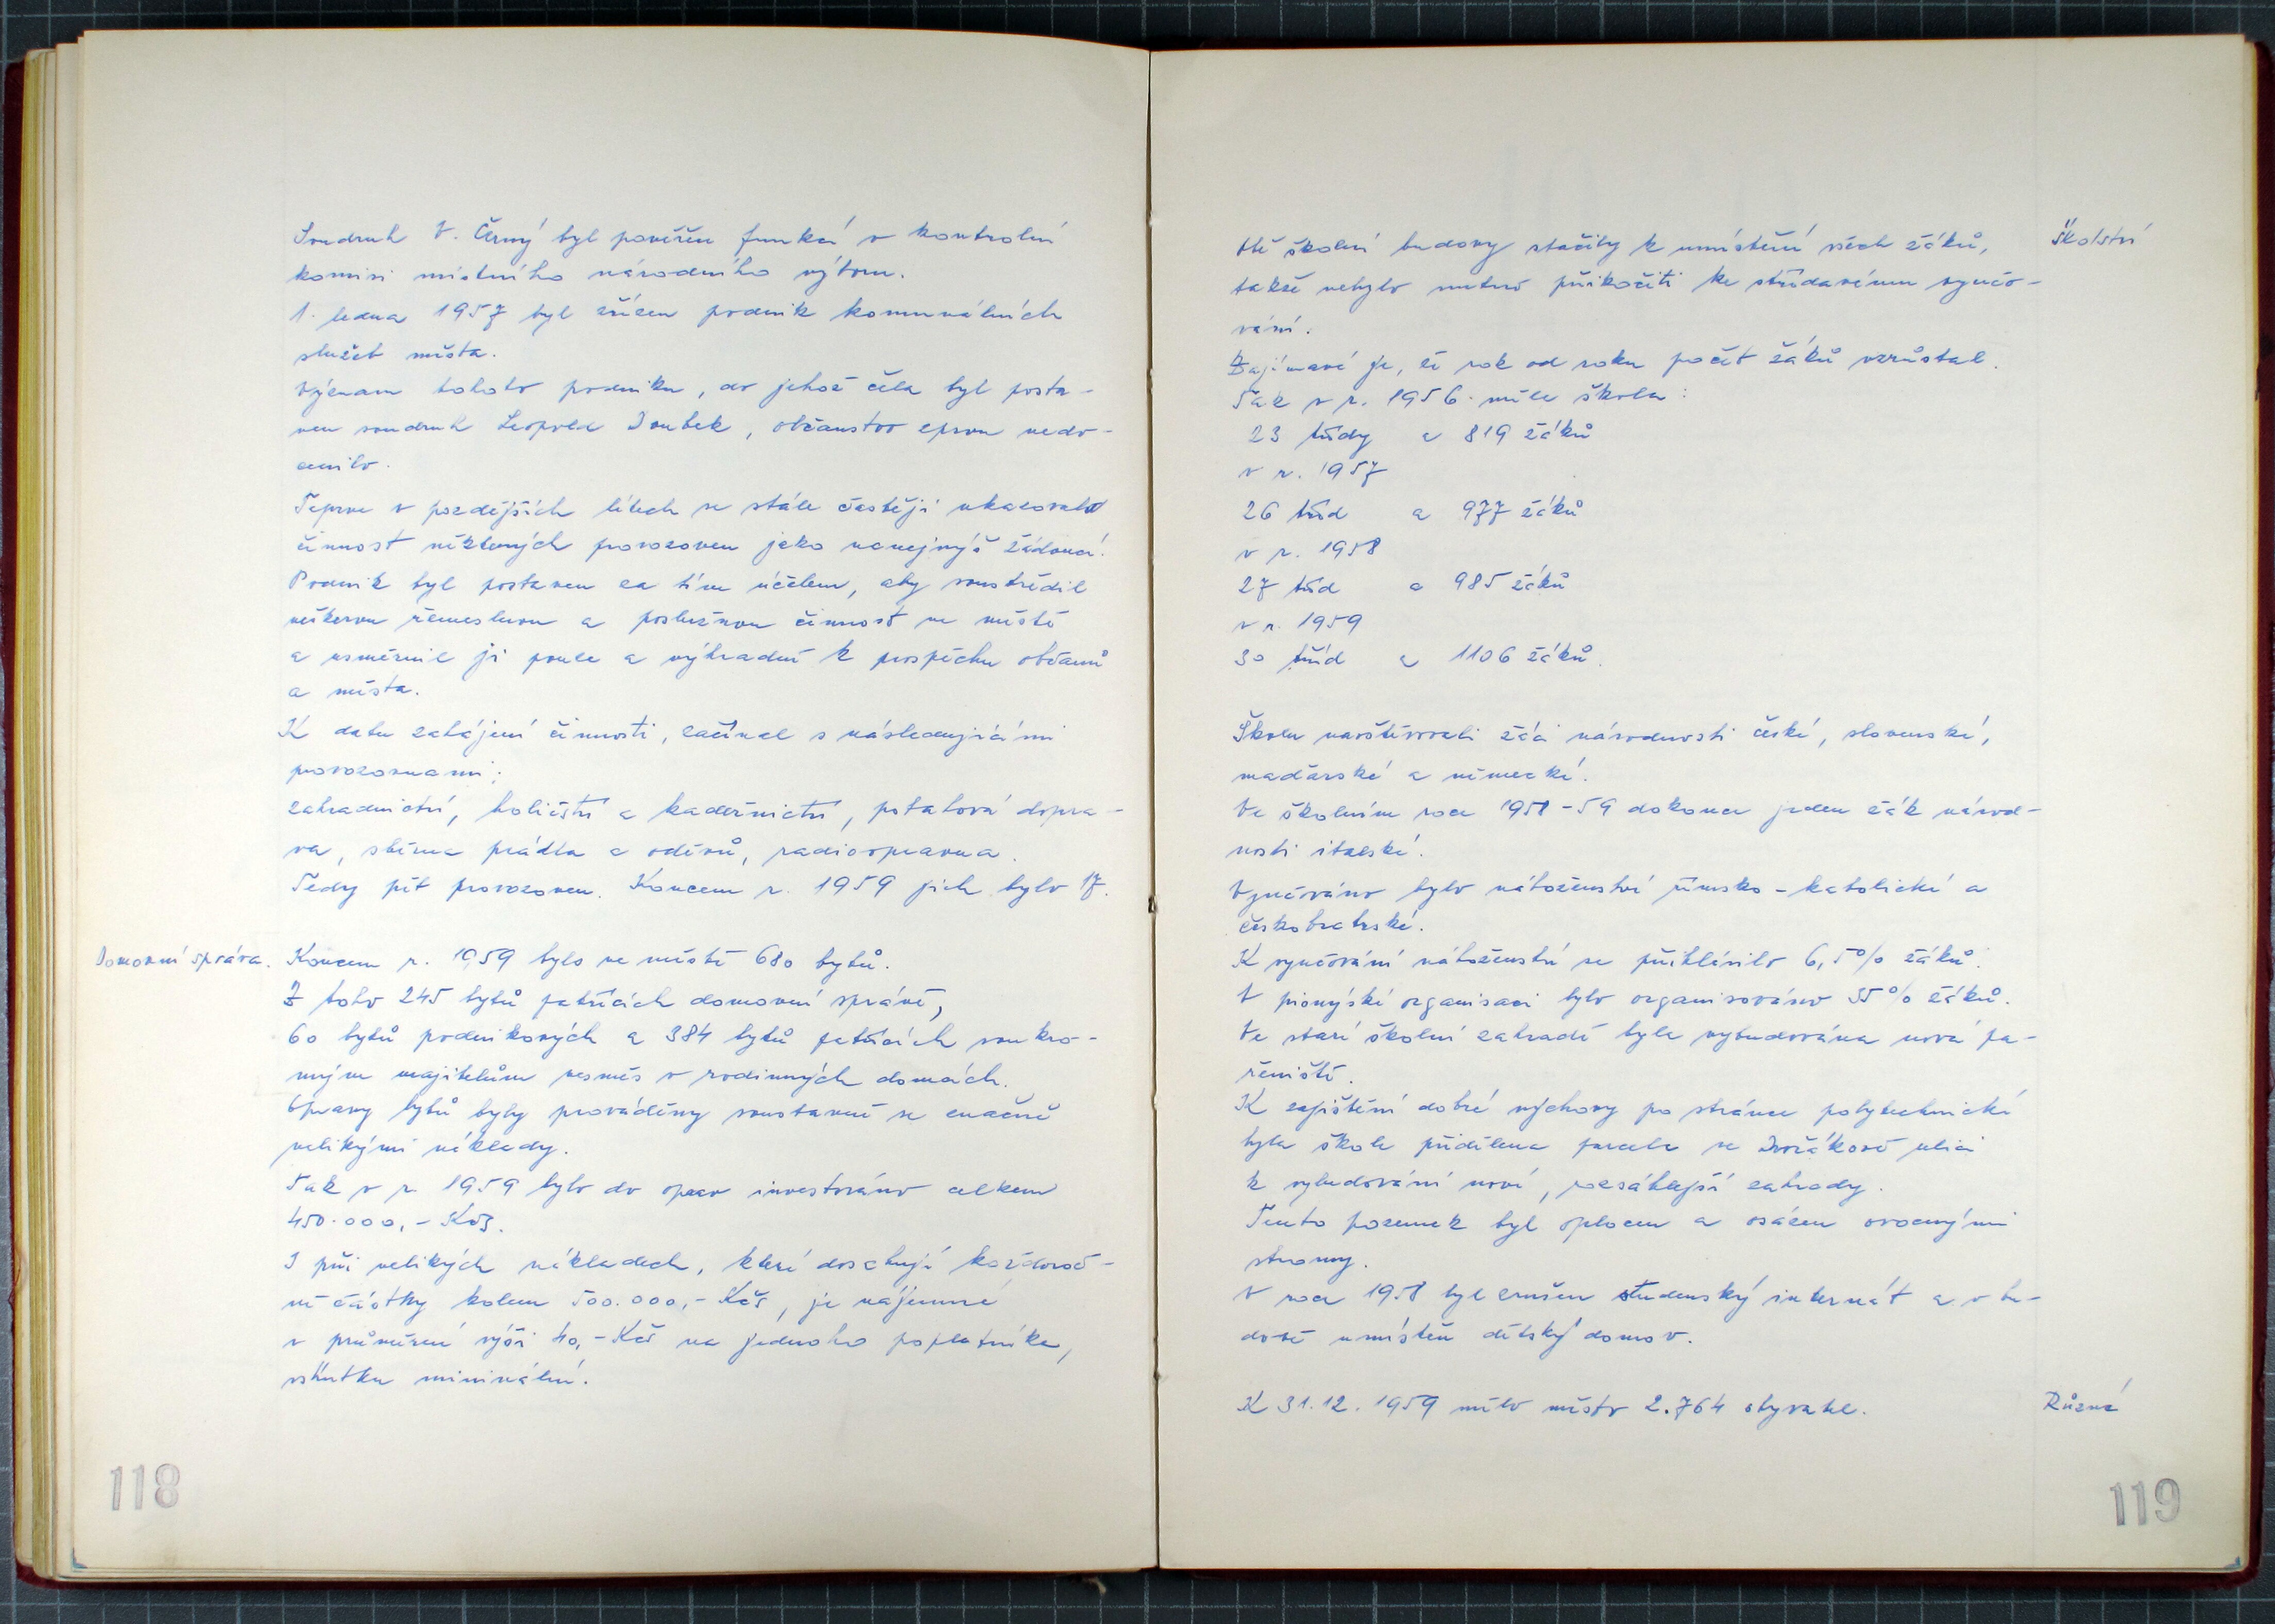 Soudruh V. Černý byl pověřen funkcí v kontrolní
komisi místního národního výboru.
1. ledna 1957 byl zřízen podnik komunálních
služeb města.
Význam tohoto podniku, do jehož čela byl posta-
ven soudruh Leopold Doubek, občanstvo zprvu nedo-
cenilo.
Teprve v pozdějších létech se stále častěji ukazovala
činnost některých provozoven jako nanejvýš žádoucí.
Podnik byl postaven za tím účelem, aby soustředil
veškerou řemeslnou a poslužnou činnost ve městě
a usměrnil ji pouze a výhradně k prospěchu občanů
a města.
K datu zahájení činnosti, začínal s následujícími
provozovnami:
zahradnictví, holičství a kadeřnictví, potahová dopra-
va, sběrna prádla a oděvů, radioopravna.
Tedy pět provozoven. Koncem r. 1959 jich bylo 17.
Domovní správa.
Koncem r. 1959 bylo ve městě 680 bytů.
Z toho 245 bytů patřících domovní správě,
60 bytů podnikových a 384 bytů patřících soukro-
mým majitelům vesměs v rodinných domcích.
Opravy bytů byly prováděny soustavně se značně
velikými náklady.
Tak v r. 1959 bylo do oprav investováno celkem
450.000,- Kčs.
I při velikých nákladech, které dosahují každoroč-
ně částky kolem 500.000,- Kčs, je nájemné
v průměrné výši 40,- Kčs na jednoho poplatníka,
vskutku minimální.
118
Obě školní budovy stačily k umístění všech žáků,
Školství
takže nebylo nutno přikročiti ke střídavému vyučo-
vání.
Zajímavé je, že rok od roku počet žáků vzrůstal.
Tak v r. 1956 měla škola:
23 třídy a 819 žáků
v r. 1957
26 tříd a 977 žáků
v r. 1958
27 tříd a 985 žáků
v r. 1959
30 tříd a 1106 žáků.
Školu navštěvovali žáci národnosti české, slovenské,
maďarské a německé.
Ve školním roce 1958-59 dokonce jeden žák národ-
nosti italské.
Vyučováno bylo náboženství římsko-katolické a
českobratrské.
K vyučování náboženství se přihlásilo 6,5% žáků.
V pionýrské organisaci bylo organisováno 55% žáků.
Ve staré školní zahradě byla vybudována nová pa-
řeniště.
K zajištění dobré výchovy po stránce polytechnické
byla škole přidělena parcela ve Dvořákově ulici
k vybudování nové, rozsáhlejší zahrady.
Tento pozemek byl oplocen a osázen ovocnými
stromy.
V roce 1958 byl zrušen studenský internát a v bu-
dově umístěn dětský domov.
K 31.12. 1959 mělo město 2.764 obyvatel.
Různé
119